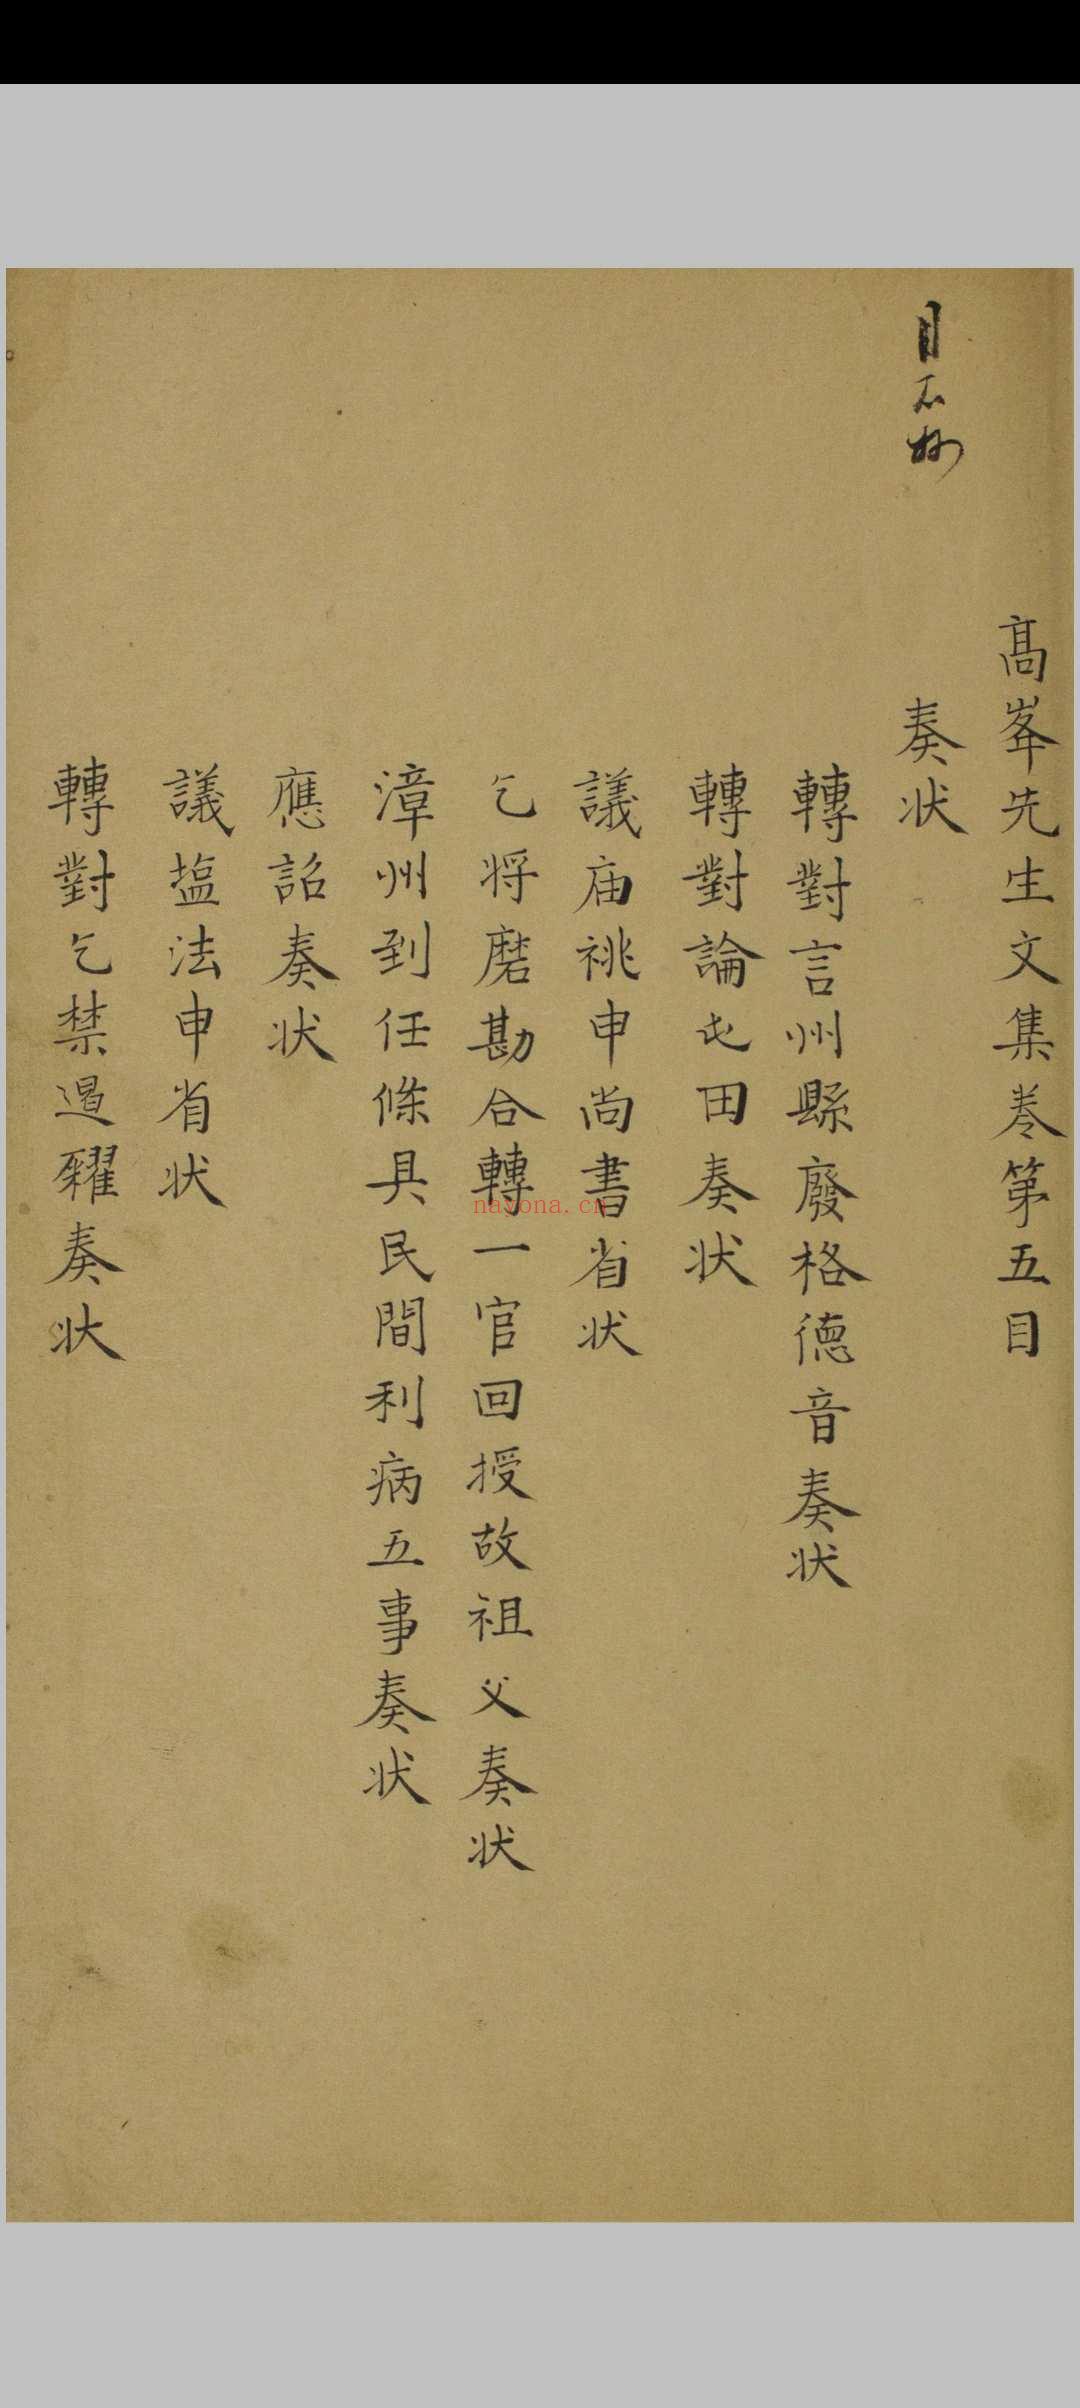 高峯先生文集卷第五目
目不抄
奏状
轉對言州縣廢格徳音奏状
轉對論屯田奏状
議庙祧申尚書省状
乞将磨勘合轉一官回授故祖父奏状
漳州到任條具民間利病五事奏状
應詔奏状
議塩法申省状
轉對乞禁遏糴奏状
nayona.cn